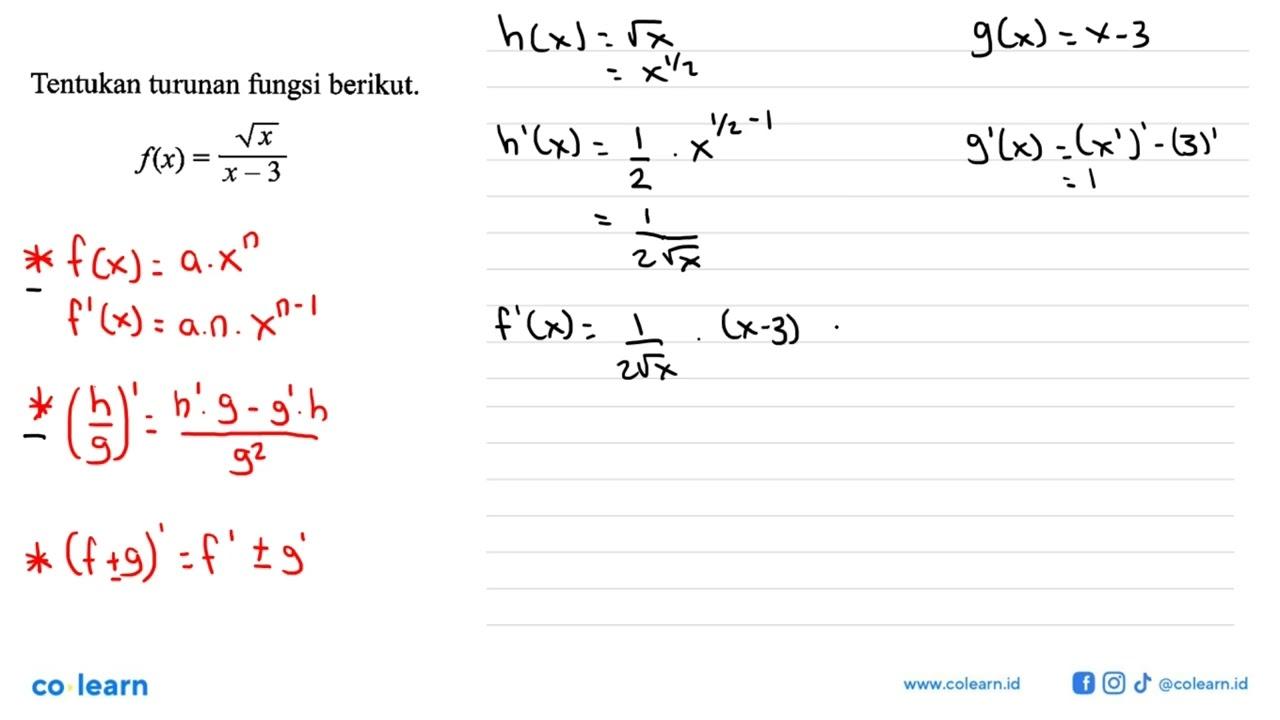 Tentukan turunan fungsi berikut.
f(x) = √x / (x – 3)
* f(x) = a.xⁿ
f'(x) = a.n. xⁿ⁻¹
* (h/g)' = (h'.g - g'.h) / g²
* (f±g)' = f' ± g'
h(x) = √x
= x^1/2
h'(x) = 1/2 . x^1/2 -1
= 1 / 2√x
g(x) = x-3
g'(x) = (x')' - (3)'
= 1
f'(x) = 1 / 2√x . (x-3) .
co·learn
www.colearn.id
@colearn.id